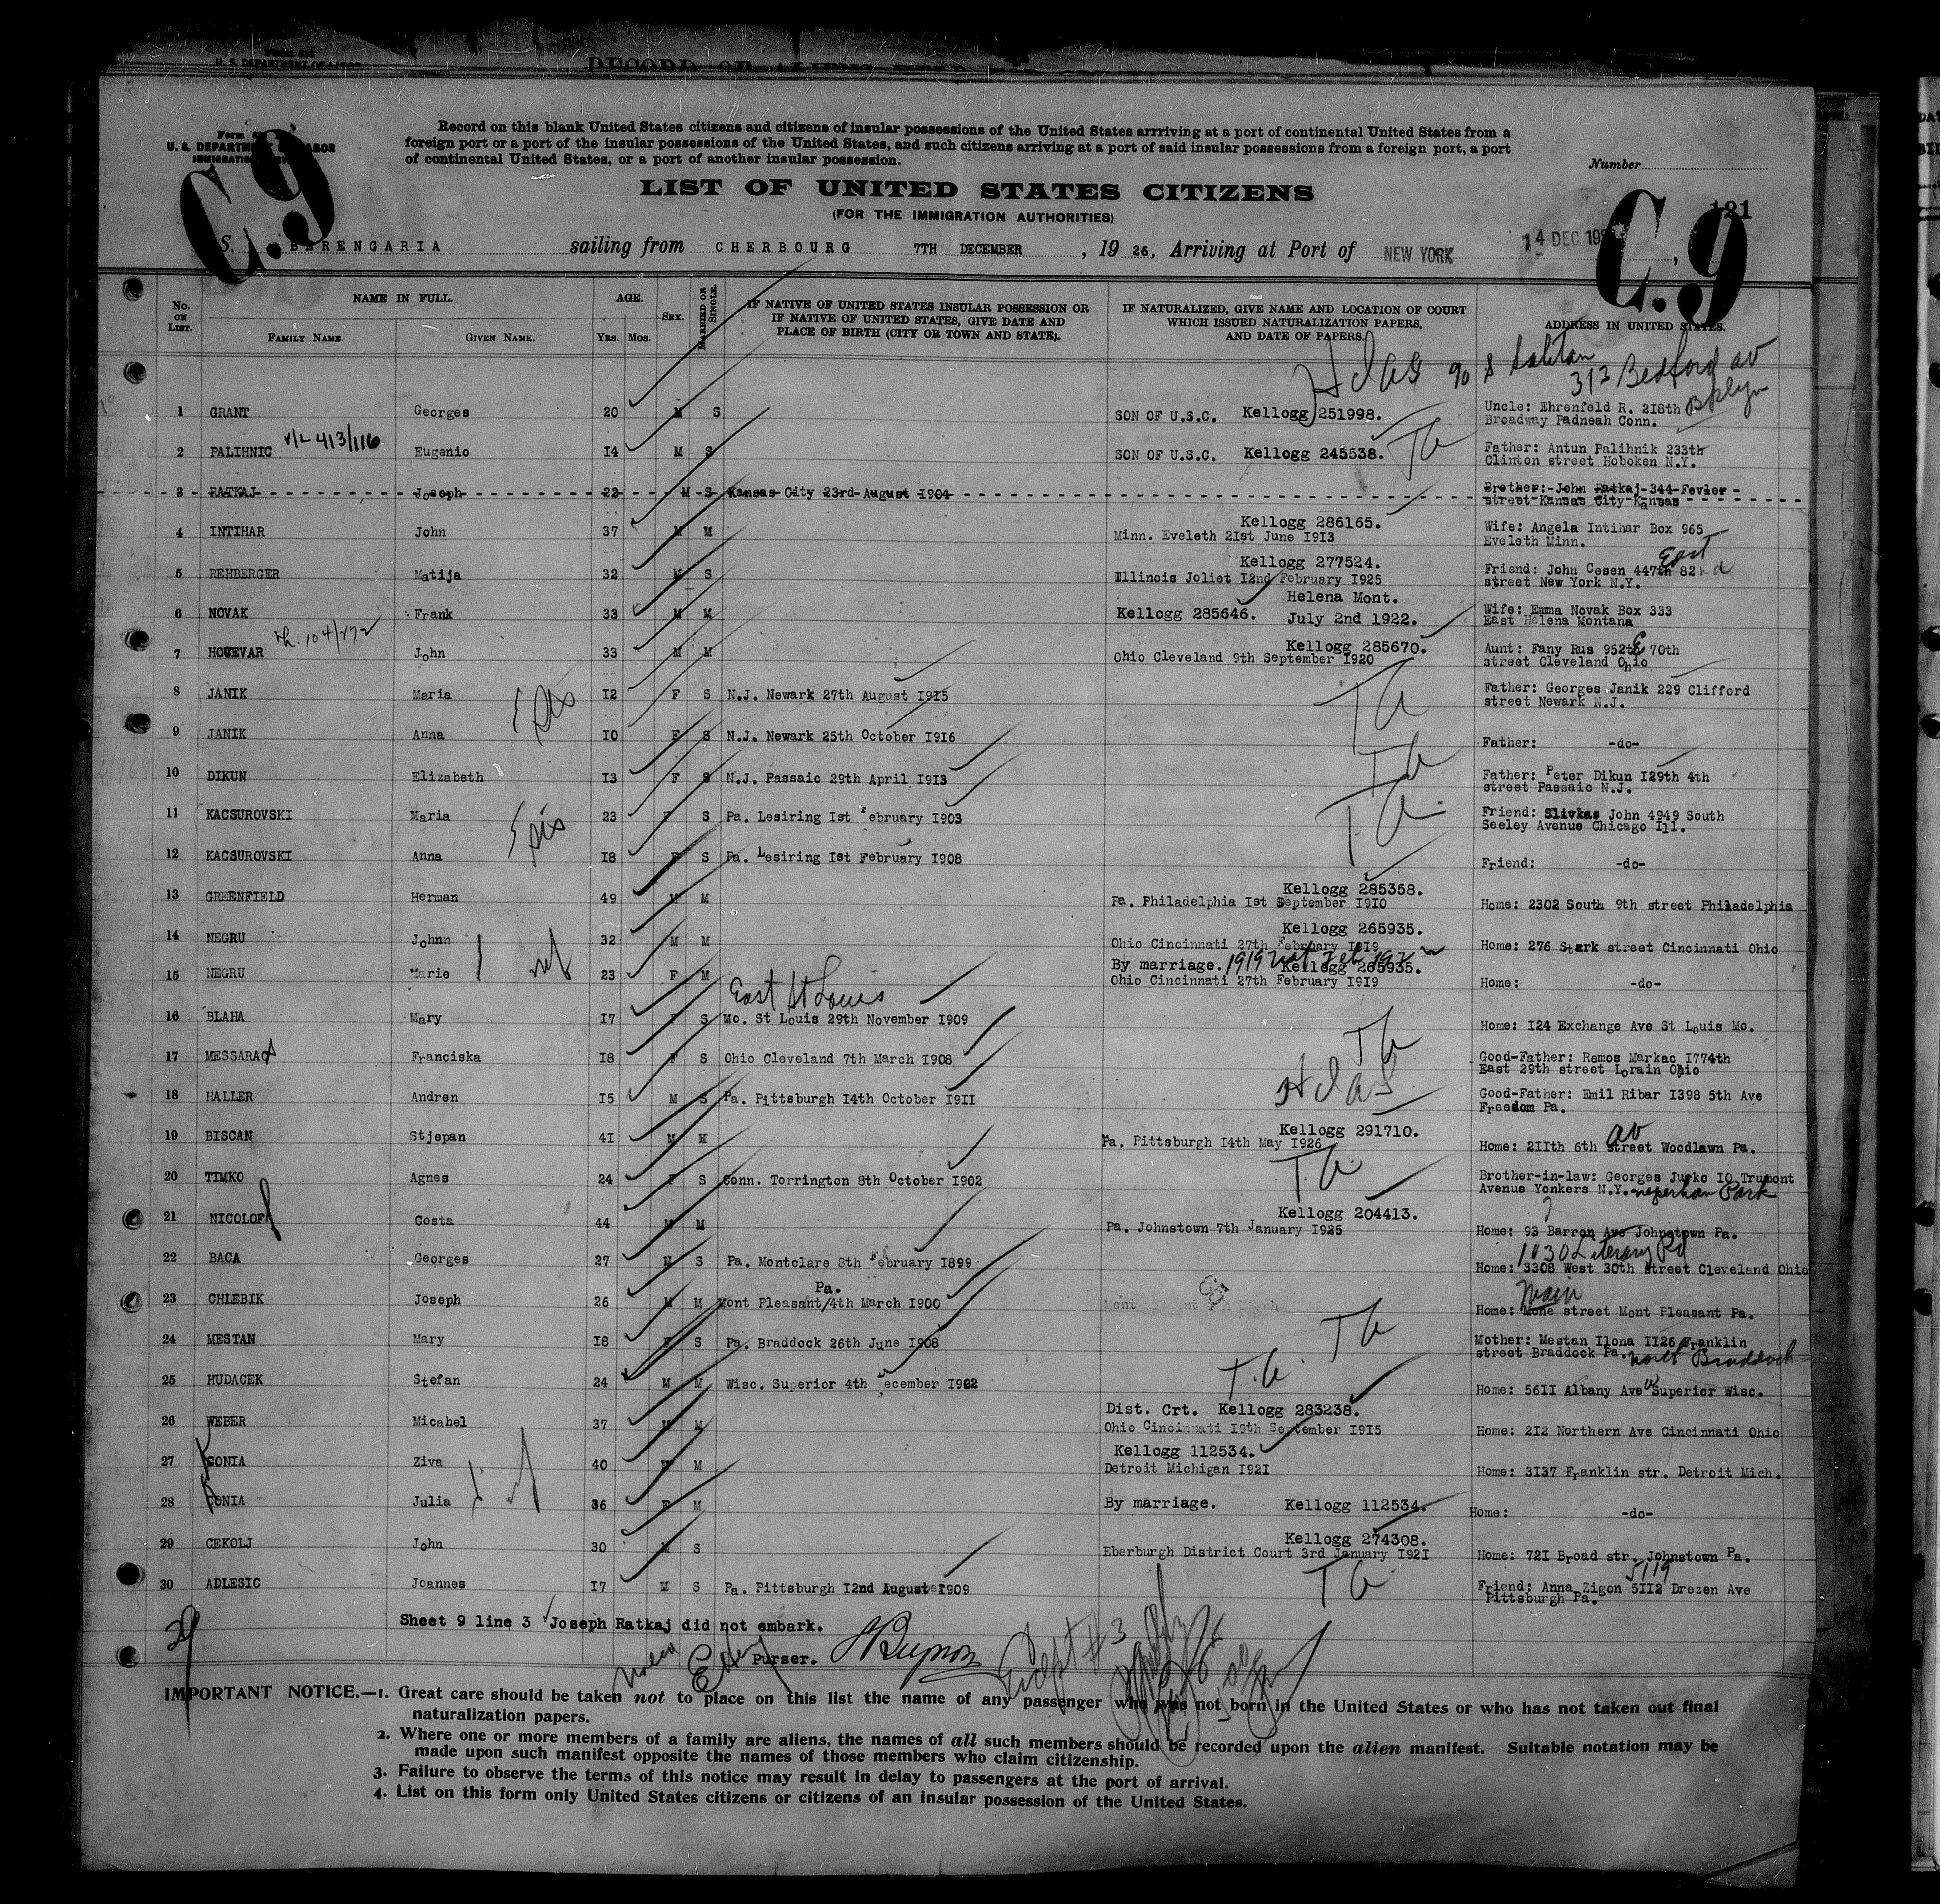 RECORD OF ALIENS
U. S. DEPARTMENT OF LABOR
Form
U. S. DEPARTMENT LABOR
IMMIGRATION
C.9
Record on this blank United States citizens and citizens of insular possessions of the United States arrriving at a port of continental United States from a
foreign port or a port of the insular possessions of the United States, and such citizens arriving at a port of said insular possessions from a foreign port, a port
of continental United States, or a port of another insular possession.
Number
LIST OF UNITED STATES CITIZENS
(FOR THE IMMIGRATION AUTHORITIES)
121
C.9
S. BERENGARIA sailing from CHERBOURG 7TH DECEMBER, 1926, Arriving at Port of NEW YORK 14 DEC 19
No. ON LIST. NAME IN FULL. FAMILY NAME. GIVEN NAME. AGE. Yrs. Mos. SEX. MARRIED OR SINGLE. IF NATIVE OF UNITED STATES INSULAR POSSESSION OR IF NATIVE OF UNITED STATES, GIVE DATE AND PLACE OF BIRTH (CITY OR TOWN AND STATE). IF NATURALIZED, GIVE NAME AND LOCATION OF COURT WHICH ISSUED NATURALIZATION PAPERS, AND DATE OF PAPERS. ADDRESS IN UNITED STATES.
313 Bedford av
Bklyn
1 GRANT Georges 20 M S SON OF U.S.C. Kellogg 251998. Uncle: Ehrenfeld R. 218th
Broadway Padneah Conn.
V/L 413/116
2 PALIHNIC Eugenio 14 M S SON OF U.S.C. Kellogg 245538. Father: Antun Palihnik 233th
Clinton street Hoboken N.Y.
3 RATKAJ Joseph 22 M S Kansas City 23rd August 1904 Brother: John Ratkaj 344 Fevier
street Kansas City Kansas
4 INTIHAR John 37 M M Kellogg 286165. Minn. Eveleth 21st June 1913 Wife: Angela Intihar Box 965
Eveleth Minn.
East
5 REHBERGER Matija 32 M S Kellogg 277524. Illinois Joliet 12nd February 1925 Friend: John Cesen 447th 82 nd
street New York N.Y.
6 NOVAK Frank 33 M M Helena Mont. Kellogg 285646. July 2nd 1922. Wife: Emma Novak Box 333
East Helena Montana
7 HOCEVAR John 33 M M Kellogg 285670. Ohio Cleveland 9th September 1920 Aunt: Fany Rus 952th E 70th
street Cleveland Ohio
8 JANIK Maria 12 F S N.J. Newark 27th August 1915 Father: Georges Janik 229 Clifford
street Newark N.J.
9 JANIK Anna 10 F S N.J. Newark 25th October 1916 Father: -do-
10 DIKUN Elizabeth 13 F S N.J. Passaic 29th April 1913 Father: Peter Dikun 129th 4th
street Passaic N.J.
11 KACSUROVSKI Maria 23 F S Pa. Lesiring 1st February 1903 Friend: Slivkas John 4949 South
Seeley Avenue Chicago Ill.
12 KACSUROVSKI Anna 18 F S Pa. Lesiring 1st February 1908 Friend: -do-
13 GREENFIELD Herman 49 M M Kellogg 285358. Pa. Philadelphia 1st September 1910 Home: 2302 South 9th street Philadelphia
14 NEGRU Johnn 32 M M Kellogg 265935. Ohio Cincinnati 27th February 1919 Home: 276 Stark street Cincinnati Ohio
15 NEGRU Marie 23 F M By marriage. Kellogg 265935. Ohio Cincinnati 27th February 1919 Home: -do-
East St Louis
16 BLAHA Mary 17 F S Mo. St Louis 29th November 1909 Home: 124 Exchange Ave St Louis Mo.
17 MESSARAOS Franciska 18 F S Ohio Cleveland 7th March 1908 Good-Father: Remos Markac 1774th
East 29th street Lorain Ohio
18 HALLER Andren 15 M S Pa. Pittsburgh 14th October 1911 Good-Father: Emil Ribar 1398 5th Ave
Freedom Pa.
19 BISCAN Stjepan 41 M M Kellogg 291710. Pa. Pittsburgh 14th May 1926 Home: 211th 6th street av Woodlawn Pa.
20 TIMKO Agnes 24 F S Conn. Torrington 8th October 1902 Brother-in-law: Georges Jurko 10 Trumont
Avenue Yonkers N.Y. neperhan Park
21 NICOLOFF Costa 44 M M Kellogg 204413. Pa. Johnstown 7th January 1925 Home: 93 Barron Ave Johnstown Pa.
1030 Literary Rd
22 BACA Georges 27 M S Pa. Montclare 8th February 1899 Home: 3308 West 30th street Cleveland Ohio
Main
23 CHLEBIK Joseph 26 M M Mont Pleasant/4th March 1900 Pa. Home: Mone street Mont Pleasant Pa.
24 MESTAN Mary 18 F S Pa. Braddock 26th June 1908 Mother: Mestan Ilona 1126 Franklin
street Braddock Pa. North Braddock
25 HUDACEK Stefan 24 M M Wisc. Superior 4th December 1902 Home: 5611 Albany Ave Superior Wisc.
26 WEBER Micahel 37 M M Dist. Crt. Kellogg 283238. Ohio Cincinnati 18th September 1915 Home: 212 Northern Ave Cincinnati Ohio
27 GONIA Ziva 40 M M Kellogg 112534. Detroit Michigan 1921 Home: 3137 Franklin str. Detroit Mich.
28 GONIA Julia 36 F M By marriage. Kellogg 112534. Home: -do-
29 CEKOLJ John 30 M S Kellogg 274308. Eberburgh District Court 3rd January 1921 Home: 721 Broad str. Johnstown Pa.
5119
30 ADLESIC Joannes 17 M S Pa. Pittsburgh 12nd August 1909 Friend: Anna Zigon 5112 Drezen Ave
Pittsburgh Pa.
29
Sheet 9 line 3 Joseph Ratkaj did not embark.
Purser.
Except #3
IMPORTANT NOTICE.—1. Great care should be taken not to place on this list the name of any passenger who was not born in the United States or who has not taken out final
naturalization papers.
2. Where one or more members of a family are aliens, the names of all such members should be recorded upon the alien manifest. Suitable notation may be
made upon such manifest opposite the names of those members who claim citizenship.
3. Failure to observe the terms of this notice may result in delay to passengers at the port of arrival.
4. List on this form only United States citizens or citizens of an insular possession of the United States.